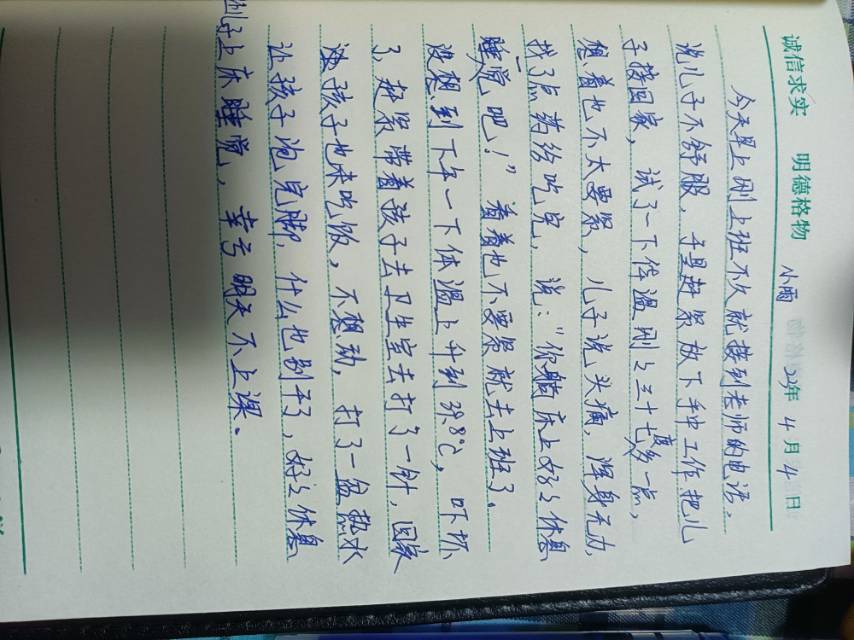 诚信求实 明德格物 小雨 23年4月4日
今天早上刚上班不久就接到老师的电话,
说儿子不舒服,于是赶紧放下手中工作把儿
子接回家,试了一下体温刚刚三十七度多一点,
想着也不太要紧,儿子说头痛,浑身无力,
找了点药给吃完,说:“你躺床上好好休息
睡觉吧!”看着也不要紧就去上班了。
没想到下午一下体温上升到38.8℃,吓坏
了,赶紧带着孩子去卫生室去打了一针,回家
孩子也未吃饭,不想动,打了一盆热水
让孩子泡完脚,什么也别弄了,好好休息
上床睡觉,幸亏明天不上课。